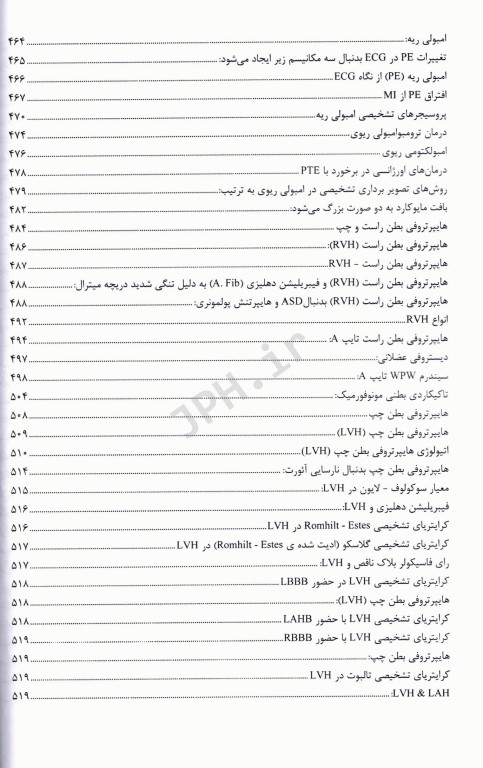 امبولی ریه:.......... ۴۶۴
تغییرات PE در ECG بدنبال سه مکانیسم زیر ایجاد می‌شود:.......... ۴۶۵
امبولی ریه (PE) از نگاه ECG.......... ۴۶۶
افتراق PE از MI.......... ۴۶۷
پروسیجرهای تشخیصی امبولی ریه.......... ۴۷۰
درمان ترومبوامبولی ریوی.......... ۴۷۴
امبولکتومی ریوی.......... ۴۷۶
درمان‌های اورژانسی در برخورد با PTE.......... ۴۷۸
روش‌های تصویر برداری تشخیصی در امبولی ریوی به ترتیب:.......... ۴۷۹
بافت مایوکارد به دو صورت بزرگ می‌شود:.......... ۴۸۲
هایپرتروفی بطن راست و چپ.......... ۴۸۴
هایپرتروفی بطن راست (RVH):.......... ۴۸۶
هایپرتروفی بطن راست - RVH.......... ۴۸۷
هایپرتروفی بطن راست (RVH) و فیبریلیشن دهلیزی (A. Fib) به دلیل تنگی شدید دریچه میترال:.......... ۴۸۸
هایپرتروفی بطن راست (RVH) بدنبالASD و هایپرتنش پولمونری:.......... ۴۸۸
انواع RVH.......... ۴۹۲
هایپرتروفی بطن راست تایپ A:.......... ۴۹۴
دیستروفی عضلانی:.......... ۴۹۷
سیندرم WPW تایپ A:.......... ۴۹۸
تاکیکاردی بطنی مونوفورمیک:.......... ۵۰۴
هایپرتروفی بطن چپ.......... ۵۰۸
هایپرتروفی بطن چپ (LVH).......... ۵۰۹
اتیولوژی هایپرتروفی بطن چپ (LVH).......... ۵۱۰
هایپرتروفی بطن چپ بدنبال نارسایی آئورت:.......... ۵۱۴
معیار سوکولوف - لایون در LVH:.......... ۵۱۵
فیبریلیشن دهلیزی و LVH:.......... ۵۱۶
کرایتریای تشخیصی Romhilt - Estes در LVH.......... ۵۱۶
کرایتریای تشخیصی گلاسکو (ادیت شده ی Romhilt - Estes) در LVH.......... ۵۱۷
رای فاسیکولر بلاک ناقص و LVH:.......... ۵۱۷
کرایتریای تشخیصی LVH در حضور LBBB.......... ۵۱۸
هایپرتروفی بطن چپ (LVH):.......... ۵۱۸
کرایتریای تشخیصی LVH با حضور LAHB.......... ۵۱۸
کرایتریای تشخیصی LVH با حضور RBBB.......... ۵۱۹
هایپرتروفی بطن چپ:.......... ۵۱۹
کرایتریای تشخیصی تالبوت در LVH.......... ۵۱۹
LVH & LAH:.......... ۵۱۹
JPH.ir